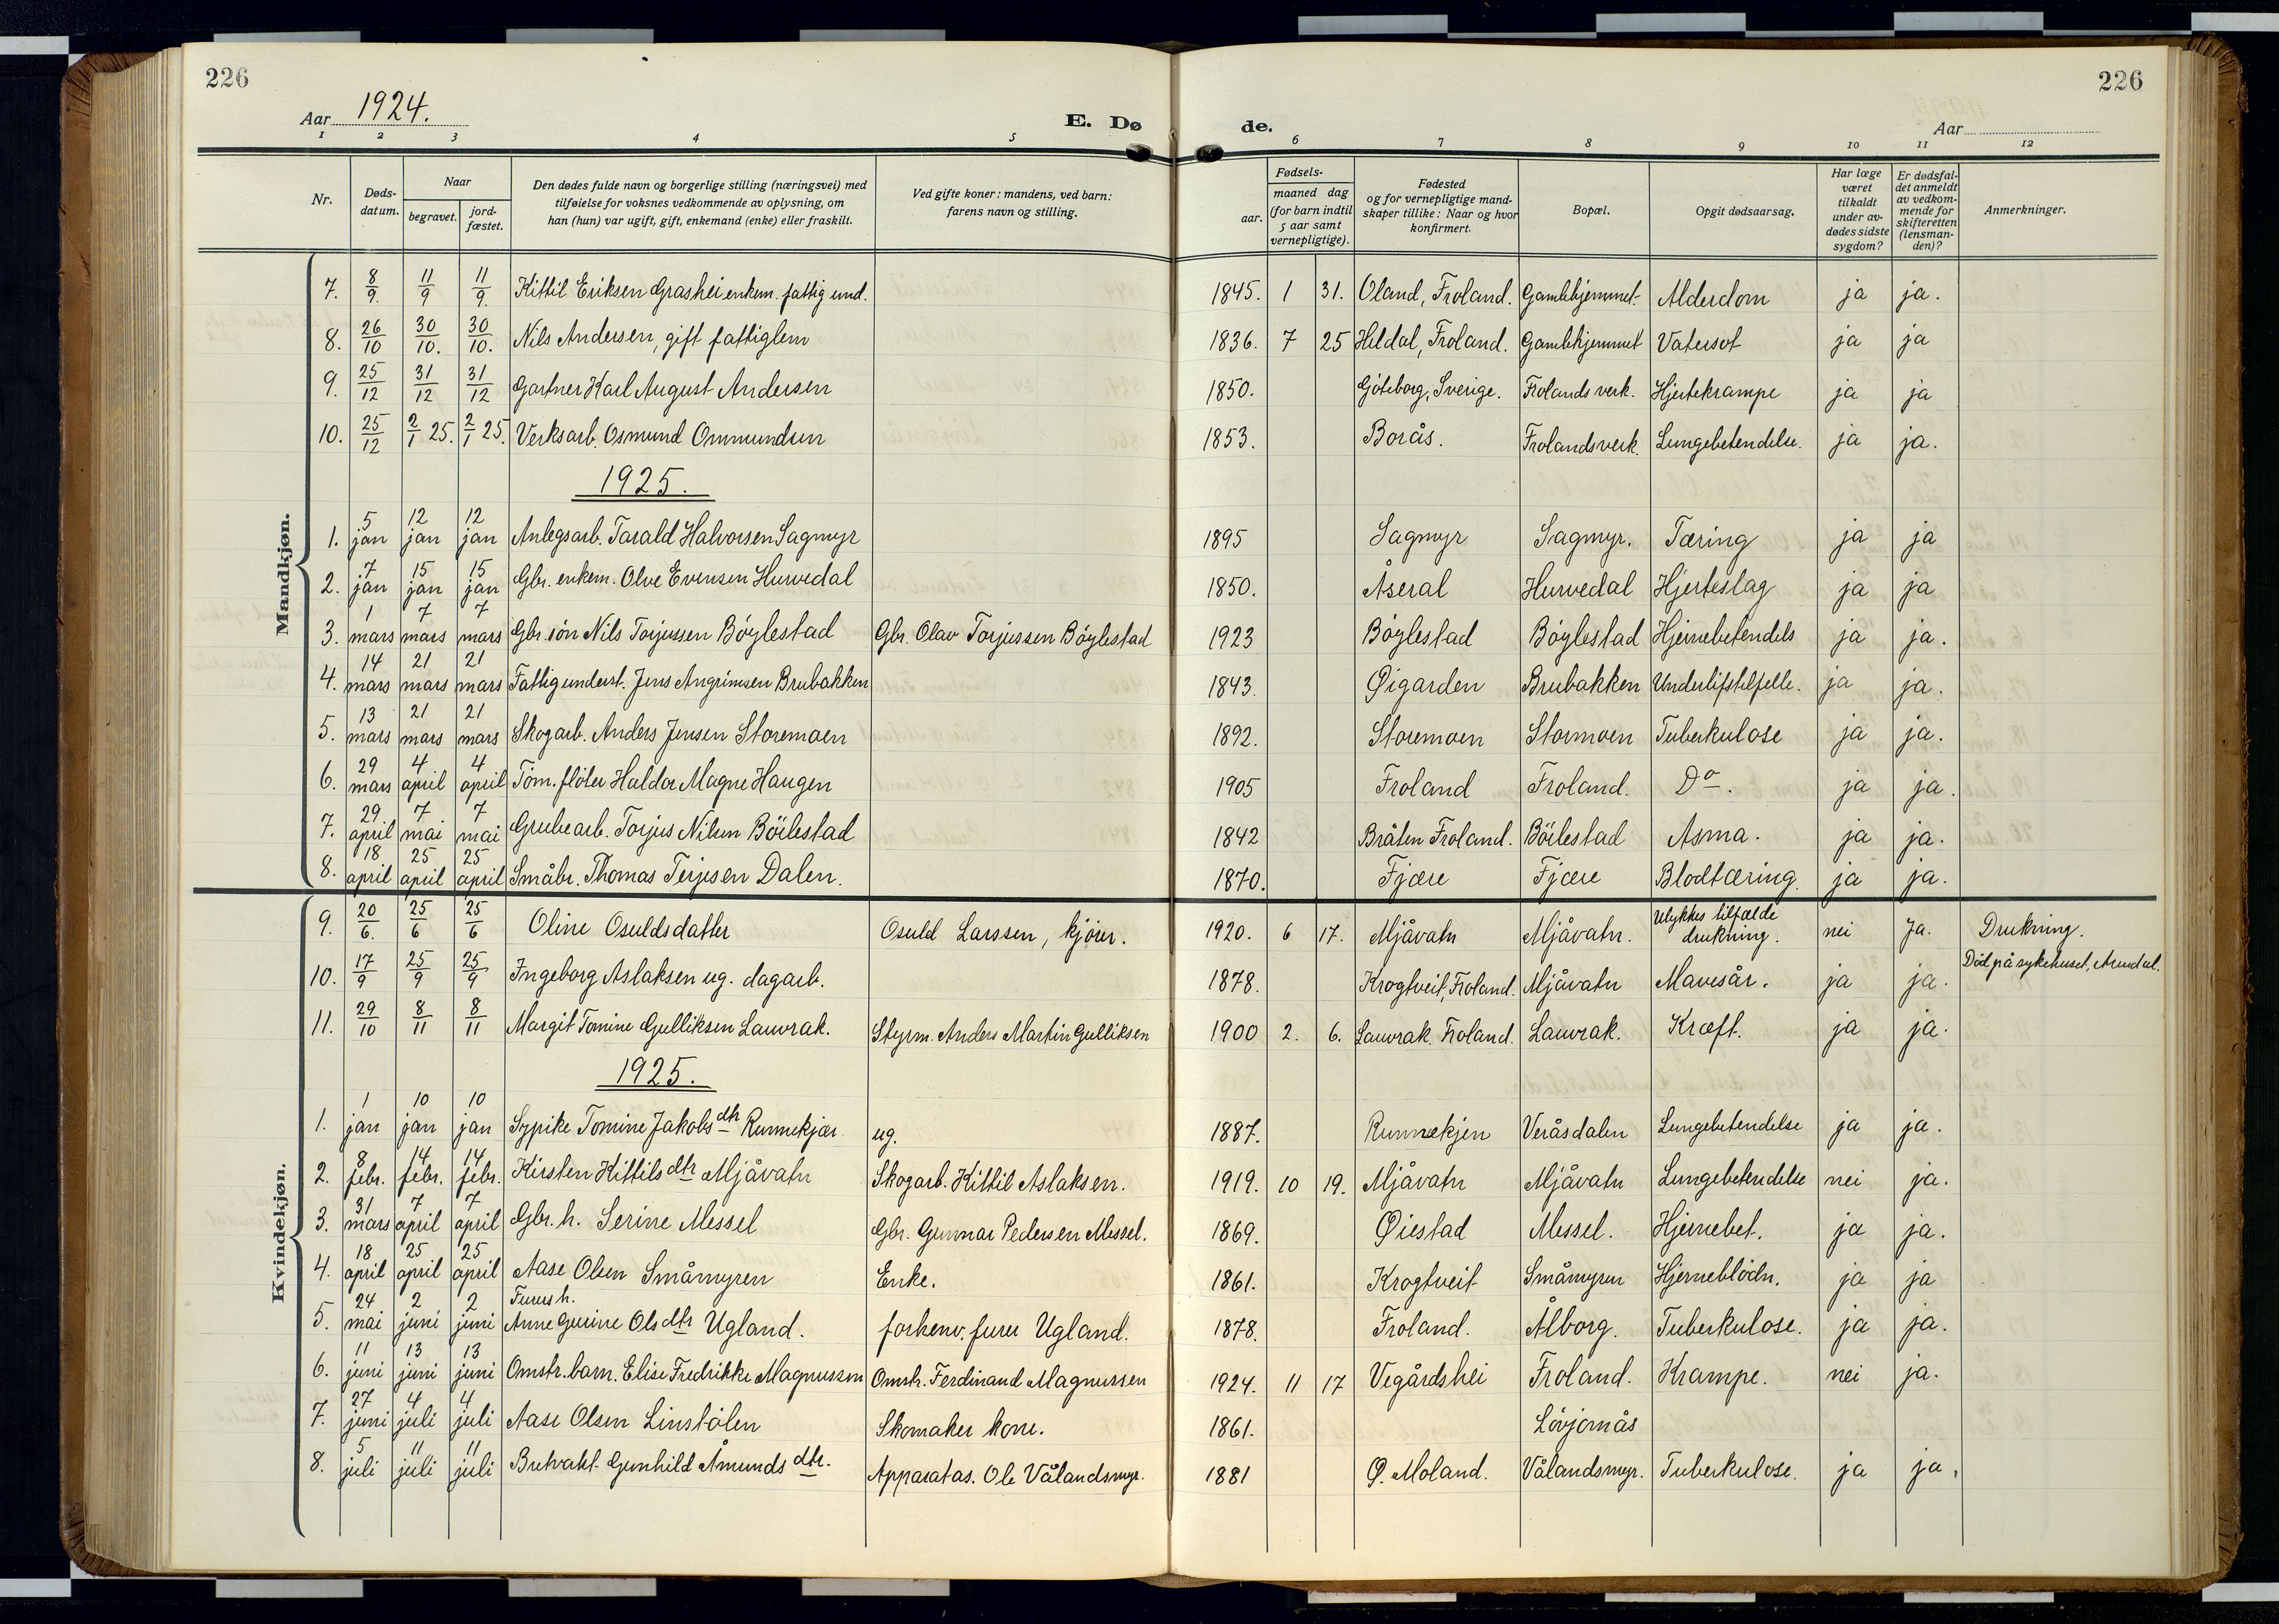 226
226
Aar 1924.
E. Dø
de.
Aar
1 2 3 4 5 6 7 8 9 10 11 12
Nr.
Døds-datum.
Naar
begravet.
jord-fæstet.
Den dødes fulde navn og borgerlige stilling (næringsvei) med
tilføielse for voksnes vedkommende av oplysning, om
han (hun) var ugift, gift, enkemand (enke) eller fraskilt.
Ved gifte koner: mandens, ved barn:
farens navn og stilling.
Fødsels-
aar.
maaned dag
(for barn indtil
5 aar samt
vernepligtige).
Fødested
og for vernepligtige mand-
skaper tillike: Naar og hvor
konfirmert.
Bopæl.
Opgit dødsaarsag.
Har læge
været
tilkaldt
under av-
dødes sidste
sygdom?
Er dødsfal-
det anmeldt
av vedkom-
mende for
skifteretten
(lensman-
den)?
Anmerkninger.
Mandkjøn.
7. 8/9. 11/9 11/9. Kittil Eriksen Grashei enkem. fattig und. 1845. 1 31. Oland, Froland. Gamlehjemmet. Alderdom ja ja.
8. 26/10 30/10. 30/10. Nils Andersen, gift fattiglem 1836. 7 25 Heldal, Froland. Gamlehjemmet Vatersot ja ja
9. 25/12 31/12 31/12 Gartner Karl August Andersen 1850. Göteborg, Sverige. Frolands verk. Hjertekrampe ja ja
10. 25/12 2/1 25. 2/1 25. Verksarb. Osmund Ommundsen 1853. Borås. Frolandsverk. Lungebetendelse. ja ja.
1925.
1. 5 jan 12 jan 12 jan Anlegsarb. Tarald Halvorsen Sagmyr 1895 Sagmyr Sagmyr. Tæring ja ja
2. 7 jan 15 jan 15 jan Gbr. enkem. Olve Evensen Hurvedal 1850. Åseral Hurvedal Hjerteslag ja ja
3. 1 mars 7 mars 7 mars Gbr. sön Nils Torjussen Böylestad Gbr. Olav Torjussen Böylestad 1923 Böylestad Böylestad Hjernebetendels ja ja.
4. 14 mars 21 mars 21 mars Fattigunderst. Jens Angrimsen Brubakken 1843. Øigarden Brubakken Underlifstilfelle. ja ja.
5. 13 mars 21 mars 21 mars Skogarb. Anders Jensen Storemoen 1892. Storemoen Stormoen Tuberkulose ja ja.
6. 29 mars 4 april 4 april Töm. flöter Haldor Magne Haugen 1905 Froland Froland. Do. ja ja.
7. 29 april 7 mai 7 mai Grubearb. Torjus Nilsen Böilestad 1842 Bråten Froland. Böilestad Asma. ja ja.
8. 18 april 25 april 25 april Småbr. Thomas Terjesen Dalen. 1870. Fjære Fjære Blodtæring. ja ja.
Kvindekjøn.
9. 20/6. 25/6 25/6 Oline Osuldsdatter Osuld Larssen, kjörer. 1920. 6 17. Mjåvatn Mjåvatn. Ulykkes tilfælde drukning. nei Ja. Drukning.
10. 17/9 25/9 25/9 Ingeborg Aslaksen ug. dagarb. 1878. Krogtveit, Froland. Mjåvatn Mavesår. ja ja. Död på sykehuset, Arendal.
11. 29/10 8/11 8/11 Margit Tomine Gulliksen Lauvrak. Styrm. Anders Martin Gulliksen 1900 2. 6. Lauvrak. Froland. Lauvrak. Kræft. ja ja.
1925.
1. 1 jan 10 jan 10 jan Sypike Tomine Jakobsdtr Runnekjær ug. 1887. Runnekjen Veråsdalen Lungebetendelse ja ja.
2. 8 febr. 14 febr. 14 febr. Kirsten Kittilsdtr Mjåvatn Skogarb. Kittil Aslaksen. 1919. 10 19. Mjåvatn Mjåvatn Lungebetendelse nei ja.
3. 31 mars 7 april 7 april Gbr. h. Serine Messel Gbr. Gunnar Pedersen Messel. 1869. Øiestad Messel. Hjernebet. ja ja.
4. 18 april 25 april 25 april Aase Olsen Småmyren Enke. 1861. Krogtveit Småmyren Hjerneblödn. ja ja
5. 24 mai 2 juni 2 juni Furersh. Anne Gurine Olsdtr Ugland. forhenv. furer Ugland. 1878. Froland. Ålborg. Tuberkulose. ja ja.
6. 11 juni 13 juni 13 juni Omstr. barn. Elise Fredrikke Magnussen Omstr. Ferdinand Magnussen 1924. 11 17 Vegårdshei Froland. Krampe. nei ja.
7. 27 juni 4 juli 4 juli Aase Olsen Linstölen Skomaker kone. 1861. Lövjomås
8. 5 juli 11 juli 11 juli Gunhild Åmundsdtr. Apparatas. Ole Vålandsmyr. 1881 Ø. Moland. Vålandsmyr. Tuberkulose. ja ja.